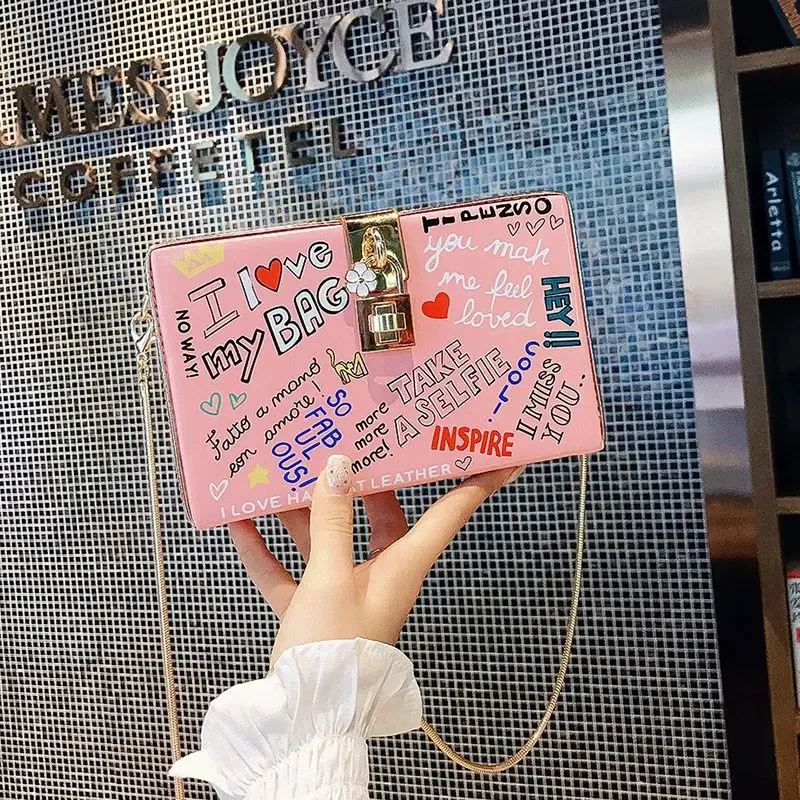 MES JOYCE
COFFETEL
Arletta
TI PENSO
I love
my BAG
NO WAY!
you mak
me feel
loved
HEY!!
Fatto a mano
con amore!
SO
FAB
UL
OUS!
more
more
more!
TAKE
A SELFIE
COOL!
II MIISS
YOU..
INSPIRE
I LOVE
AT LEATHER